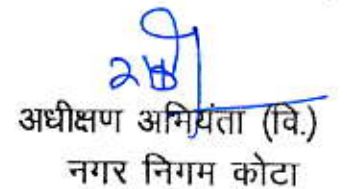 अधीक्षण अभियंता (वि.)
नगर निगम कोटा